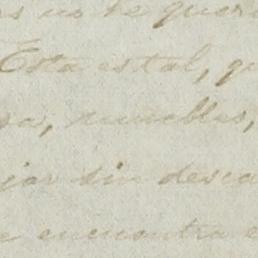 s no he quer
Esta es tal, qu
sa, muebles,
jar sin desca
e encuentra e